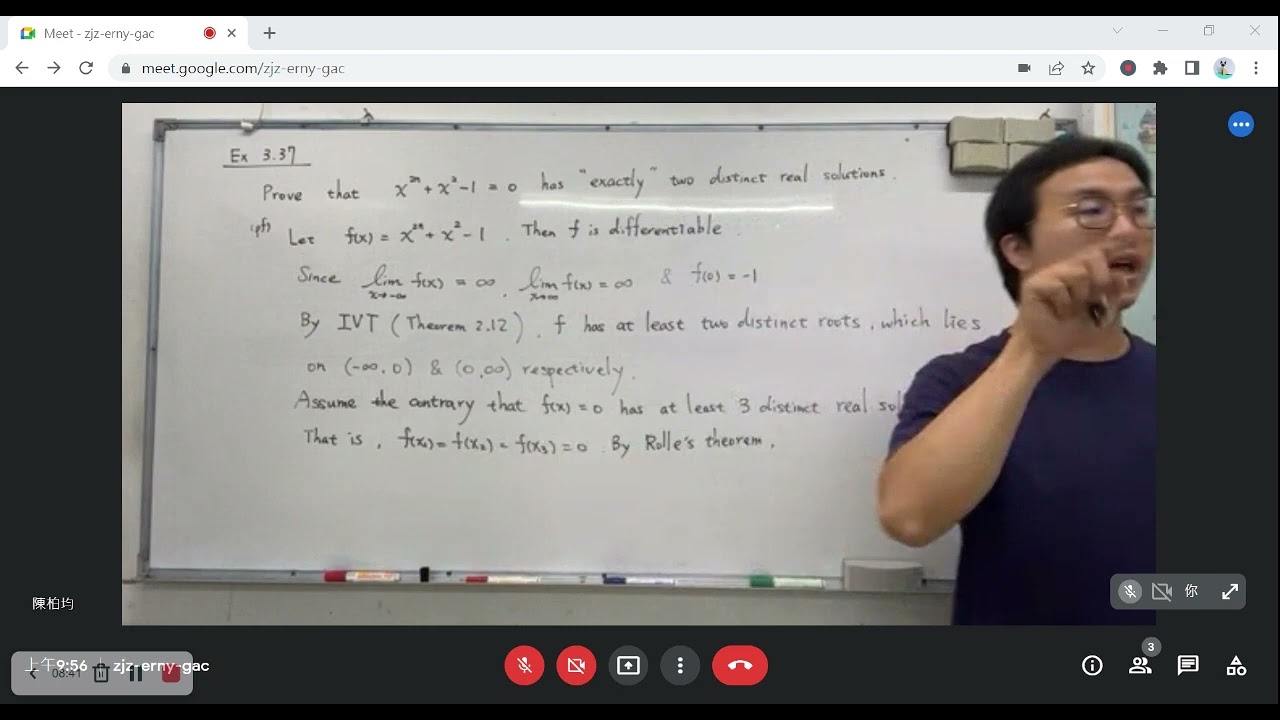 Meet - zjz-erny-gac
meet.google.com/zjz-erny-gac
Ex 3.37
Prove that x²ⁿ + x² - 1 = 0 has "exactly" two distinct real solutions.
(pf) Let f(x) = x²ⁿ + x² - 1 . Then f is differentiable
Since lim x→-∞ f(x) = ∞ , lim x→∞ f(x) = ∞ & f(0) = -1
By IVT (Theorem 2.12) , f has at least two distinct roots, which lies
on (-∞, 0) & (0, ∞) respectively.
Assume the contrary that f(x) = 0 has at least 3 distinct real sol
That is , f(x₁) = f(x₂) = f(x₃) = 0 . By Rolle's theorem ,
陳柏均
你
上午9:56 | zjz-erny-gac
08:41
3